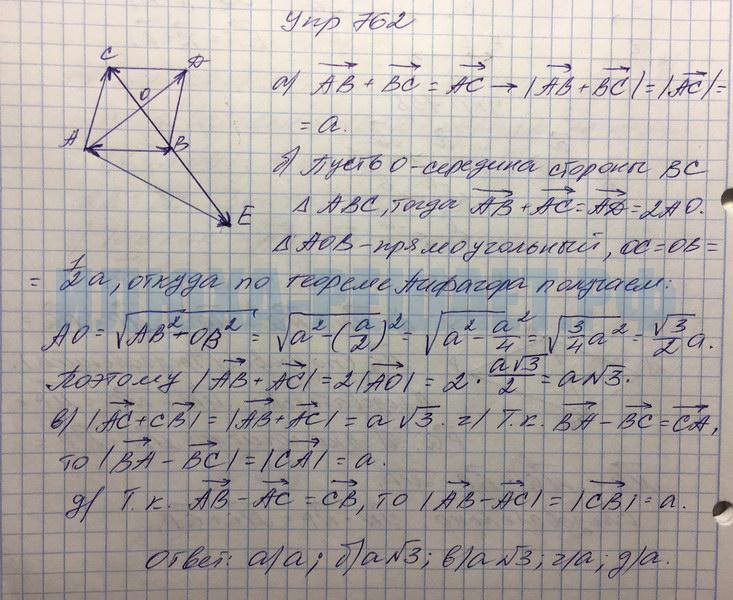 Упр 762
C D
O
A B
E
а) AB + BC = AC → |AB + BC| = |AC| =
= a.
б) Пусть O - середина стороны BC
△ ABC, тогда AB + AC = AD = 2AO.
△ AOB - прямоугольный, OC = OB =
= 1/2 a, откуда по теореме Пифагора получаем:
AO = √(AB² + OB²) = √(a² - (a/2)²) = √(a² - a²/4) = √(3/4 a²) = √3/2 a.
Поэтому |AB + AC| = 2|AO| = 2 · a√3/2 = a√3.
в) |AC + CB| = |AB + AC| = a√3. г) Т.к. BA - BC = CA,
то |BA - BC| = |CA| = a.
д) Т.к. AB - AC = CB, то |AB - AC| = |CB| = a.
Ответ: а) a; б) a√3; в) a√3; г) a; д) a.